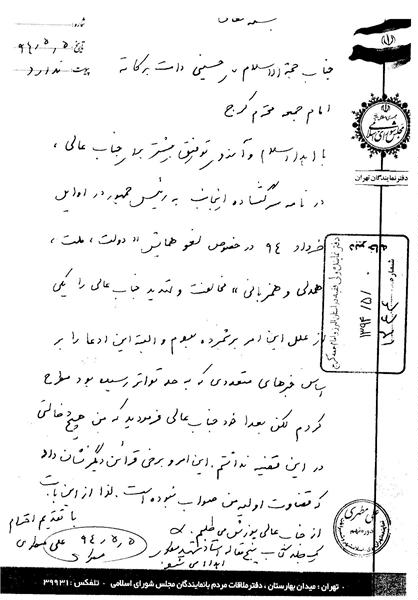 بسمه تعالی
شماره:
تاریخ: ۹۴/۵/۵
پیوست: ندارد
جناب حجة الاسلام حسینی دامت برکاته
امام جمعه محترم کرج
مجلس شورای اسلامی
دفتر نمایندگان تهران
با اهداء سلام و آرزوی توفیق بیشتر برای جناب عالی،
در نامه سرگشاده اینجانب به رئیس جمهور در اوایل
خرداد ۹۴ در خصوص لغو همایش «دولت، ملت،
همدلی و همزبانی» مخالفت و تهدید جناب عالی را یکی
از علل این امر برشمرده بودم و البته این ادعا را بر
اساس خبرهای متعددی که به حد تواتر رسیده بود مطرح
کردم لکن بعدا خود جناب عالی فرمودید که من هیچ دخالتی
در این قضیه نداشتم. این امر و برخی قرائن دیگر نشان داد
که قضاوت اولیه من صواب نبوده است. لذا از این بابت
از جناب عالی پوزش می طلبم.
با تقدیم احترام
علی مطهری
۹۴/۵/۵
شماره
۱۳۹۴/۵/
علی مطهری
تهران: میدان بهارستان، دفتر ملاقات مردم با نمایندگان مجلس شورای اسلامی - تلفکس: ۳۹۹۳۱